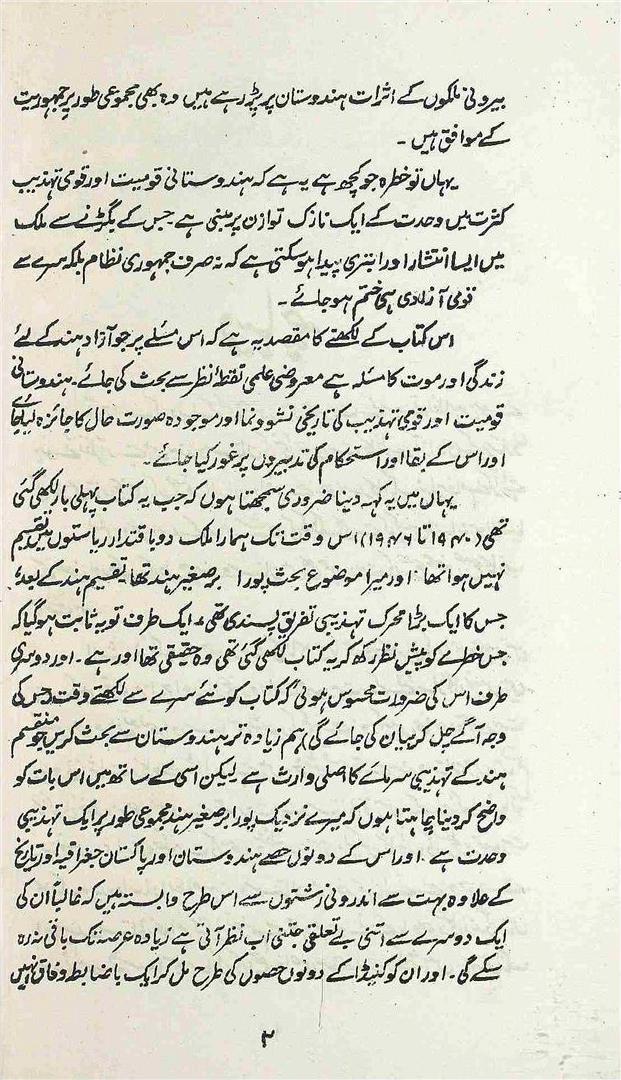 بیرونی ملکوں کے اثرات ہندوستان پر پڑ رہے ہیں وہ بھی مجموعی طور پر جمہوریت
کے موافق ہیں ۔
یہاں تو خطرہ جو کچھ ہے یہ ہے کہ ہندوستانی قومیت اور قومی تہذیب
کثرت میں وحدت کے ایک نازک توازن پر مبنی ہے جس کے بگڑنے سے ملک
میں ایسا انتشار اور ابتری پیدا ہو سکتی ہے کہ نہ صرف جمہوری نظام بلکہ سرے سے
قومی آزادی ہی ختم ہو جائے ۔
اس کتاب کے لکھنے کا مقصد یہ ہے کہ اس مسئلے پر جو آزاد ہند کے لئے
زندگی اور موت کا مسئلہ ہے معروضی علمی نقطۂ نظر سے بحث کی جائے ۔ ہندوستانی
قومیت اور قومی تہذیب کی تاریخی نشو و نما اور موجودہ صورت حال کا جائزہ لیا جائے
اور اس کے بقا اور استحکام کی تدبیروں پر غور کیا جائے ۔
یہاں میں یہ کہہ دینا ضروری سمجھتا ہوں کہ جب یہ کتاب پہلی بار لکھی گئی
تھی (۱۹۴۰ تا ۱۹۴۶) اس وقت تک ہمارا ملک دو با قتدار ریاستوں میں تقسیم
نہیں ہوا تھا اور میرا موضوع بحث پورا برصغیر ہند تھا۔ تقسیم ہند کے بعد،
جس کا ایک بڑا محرک تہذیبی تفریق پسندی تھی، ایک طرف تو یہ ثابت ہو گیا کہ
جس خطرے کو پیش نظر رکھ کر یہ کتاب لکھی گئی تھی وہ حقیقی تھا اور ہے ۔ اور دوسری
طرف اس کی ضرورت محسوس ہوئی کہ کتاب کو نئے سرے سے لکھتے وقت (جس کی
وجہ آگے چل کر بیان کی جائے گی) ہم زیادہ تر ہندوستان سے بحث کریں جو منقسم
ہند کے تہذیبی سرمائے کا اصلی وارث ہے لیکن اسی کے ساتھ میں اس بات کو
واضح کر دینا چاہتا ہوں کہ میرے نزدیک پورا برصغیر ہند مجموعی طور پر ایک تہذیبی
وحدت ہے ۔ اور اس کے دونوں حصے ہندوستان اور پاکستان جغرافیہ اور تاریخ
کے علاوہ بہت سے اندرونی رشتوں سے اس طرح وابستہ ہیں کہ غالباً ان کی
ایک دوسرے سے اتنی بے تعلقی جتنی اب نظر آتی ہے زیادہ عرصہ تک باقی نہ رہ
سکے گی ۔ اور ان کو کنیڈا کے دونوں حصوں کی طرح مل کر ایک باضابطہ وفاق نہیں
۳